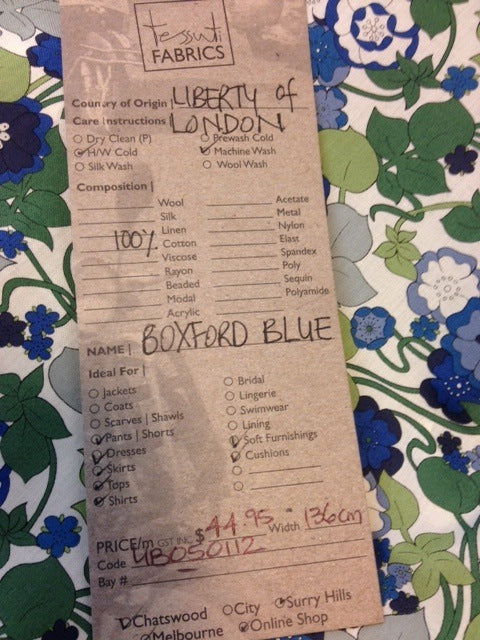 tessuti
FABRICS
Country of Origin | LIBERTY of
Care Instructions LONDON
Dry Clean (P) Prewash Cold
H/W Cold Machine Wash
Silk Wash Wool Wash
Composition |
Wool Acetate
Silk Metal
Linen Nylon
100% Cotton Elast
Viscose Spandex
Rayon Poly
Beaded Sequin
Modal Polyamide
Acrylic
NAME | BOXFORD BLUE
Ideal For |
Jackets Bridal
Coats Lingerie
Scarves | Shawls Swimwear
Pants | Shorts Lining
Dresses Soft Furnishings
Skirts Cushions
Tops
Shirts
PRICE/m GST INC $44.95 Width 136cm
Code UB050112
Bay #
Chatswood City Surry Hills
Melbourne Online Shop